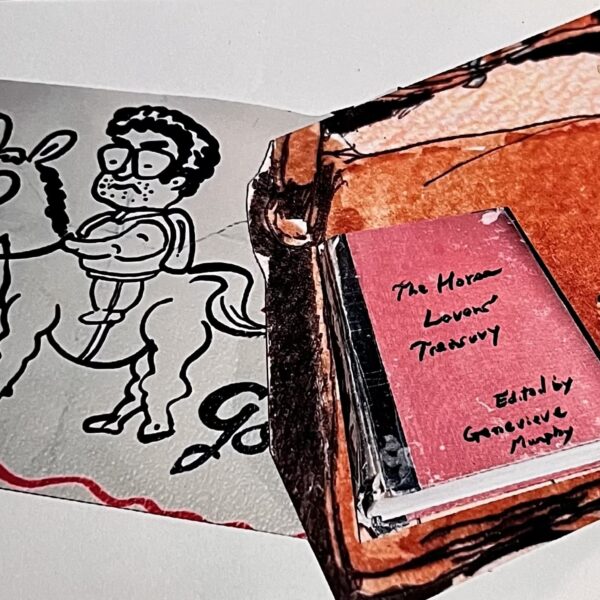 The Horse
Lovers'
Treasury
Edited by
Genevieve
Murphy